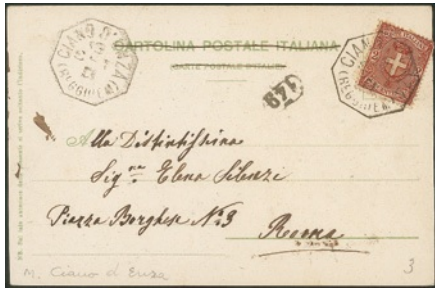 CIANO D'ENZA
(REGGIO EM
CARTOLINA POSTALE ITALIANA
(CARTE POSTALE D'ITALIE)
CIANO
(REGGIO EM
149
Alla Distintissima
Sig.na Elena Silenzi
Piazza Borghese N° 3
Roma
M. Ciano d Enza
3